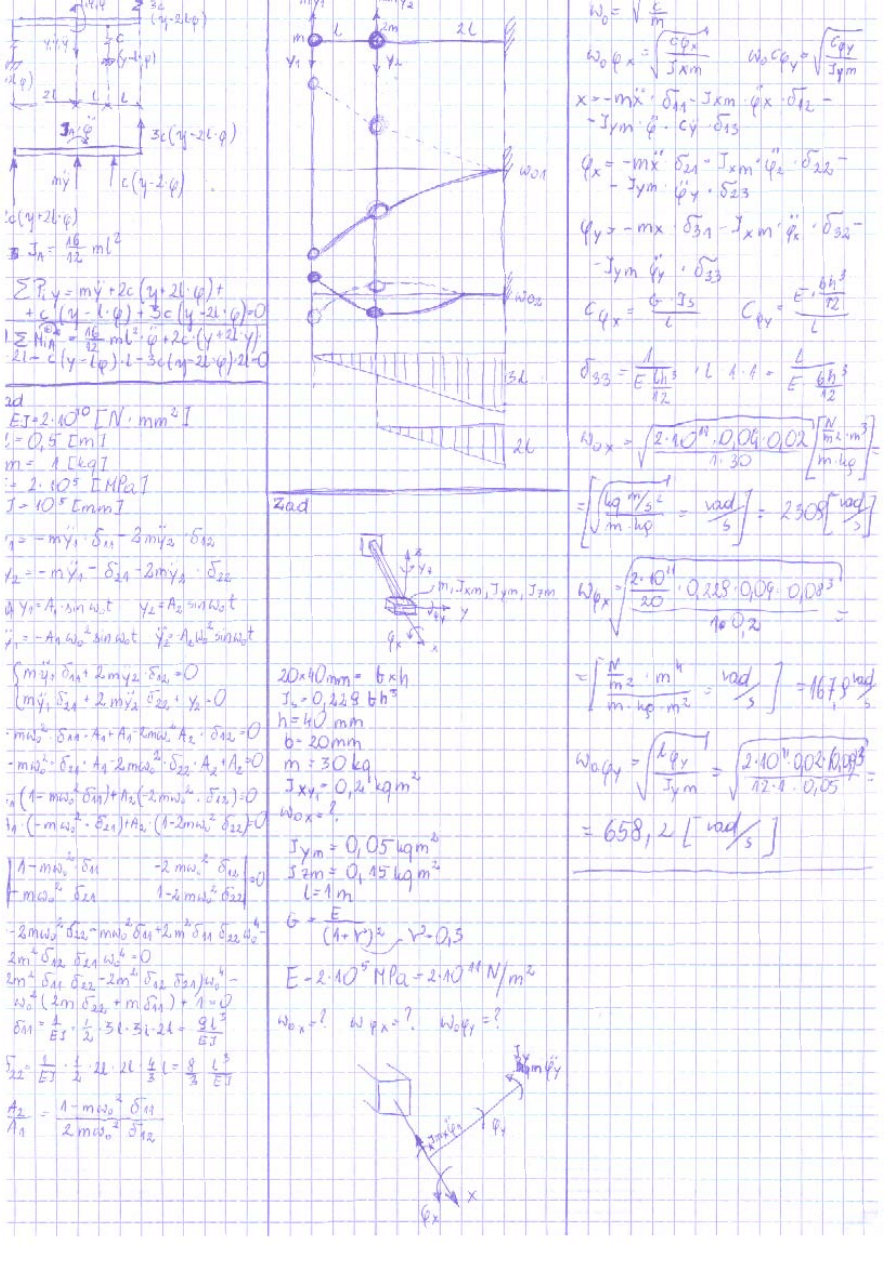 3c
(y-2lφ)
c
(y-lφ)
2l l l
J_A·φ̈
3c(y-2l·φ)
mÿ c(y-2·φ)
c(y+2l·φ)
J_A = 16/12 ml²
ΣP_iy = mÿ+2c(y+2l·φ)+
+c(y-l·φ)+3c(y-2l·φ)=0
16/12 ml²·φ̈+2c·(y+2l·y)·
·2l-c(y-lφ)·l-3c(y-2lφ)·2l=0
EJ=2·10¹⁰ [N·mm²]
=0,5 [m]
m = 1 [kg]
= 2·10⁵ [MPa]
J=10⁵ [mm]
= -mÿ₁·δ₁₁-2mÿ₂·δ₁₂
y₂=-mÿ₁-δ₂₁-2mÿ₂·δ₂₂
y₁=A₁·sinω₀t y₂=A₂ sinω₀t
ÿ₁=-A₁ω₀²sinω₀t ÿ₂=-A₂ω₀²sinω₀t
mÿ₁δ₁₁+2mÿ₂·δ₁₂=0
mÿ₁δ₂₁+2mÿ₂δ₂₂+y₂=0
-mω₀²·δ₁₁·A₁+A₁-2mω₀²A₂·δ₁₂=0
-mω₀²·δ₂₁·A₁-2mω₀²·δ₂₂·A₂+A₂=0
(1-mω₀²δ₁₁)+A₂(-2mω₀²·δ₁₂)=0
A₁·(-mω₀²·δ₂₁)+A₂·(1-2mω₀²δ₂₂)=0
|1-mω₀²·δ₁₁ -2mω₀²δ₁₂|
|-mω₀²δ₂₁ 1-2mω₀²δ₂₂|=0
-2mω₀²δ₂₂-mω₀²δ₁₁+2m²δ₁₁δ₂₂ω₀⁴-
2m²δ₁₂δ₂₁ω₀⁴=0
2m²δ₁₁δ₂₂-2m²δ₁₂δ₂₁)ω₀⁴-
ω₀²(2mδ₂₂+mδ₁₁)+1=0
δ₁₁=1/EJ·1/2·3l·3l·2l=9l³/EJ
δ₂₂=1/EJ·1/2·2l·2l·4/3l=8/3 l³/EJ
A₂/A₁ = (1-mω₀²δ₁₁)/(2mω₀²δ₁₂)
l 2l
m 2m
y₁ y₂
ω₀₁
ω₀₂
3l
2l
Zad
m, Jxm, Jym, Jzm
y
φx x
20×40mm = b×h
Js=0,229bh³
h=40 mm
b=20mm
m=30kg
Jxy₁=0,2 kgm²
ω₀x=?
Jym=0,05kgm²
Jzm=0,15kgm²
l=1m
G = E/(1+ν)² ν=0,3
E=2·10⁵MPa=2·10¹¹N/m²
ω₀x=? ωφx=? ω₀φy=?
φy
x
φx
ω₀=√(c/m)
ω₀φx=√(cφx/Jxm) ω₀cφy=√(cφy/Jym)
x=-mẍ·δ₁₁-Jxm·φ̈x·δ₁₂-
-Jym·φ̈·cy·δ₁₃
φx=-mẍ·δ₂₁-Jxm·φ̈₂·δ₂₂-
-Jym·φ̈y·δ₂₃
φy=-mx·δ₃₁-Jxm·φ̈x·δ₃₂-
-Jym φ̈y·δ₃₃
cφx=G·Js/l cφy=(E·bh³/12)/l
δ₃₃=1/(E bh³/12)·l·1·1=l/(E bh³/12)
ω₀x=√(2·10¹¹·0,04·0,02/1·30) [N/m²·m³/m·kg]=
=[√(kg m/s²/m·kg)=rad/s]=2309[rad/s]
ωφx=√(2·10¹¹/20·0,229·0,04·0,08³/1·0,2)=
=[N/m²·m⁴/m·kg·m²=rad/s]=167,9 rad/s
ω₀φy=√(cφy/Jym)=√(2·10¹¹·0,02·0,04³/12·1·0,05)=
=658,2 [rad/s]